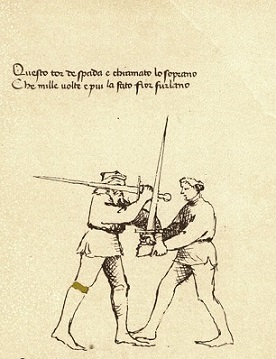 Questo tor de spada e chiamato lo soprano
Che mille volte e pui la fato fior furlano